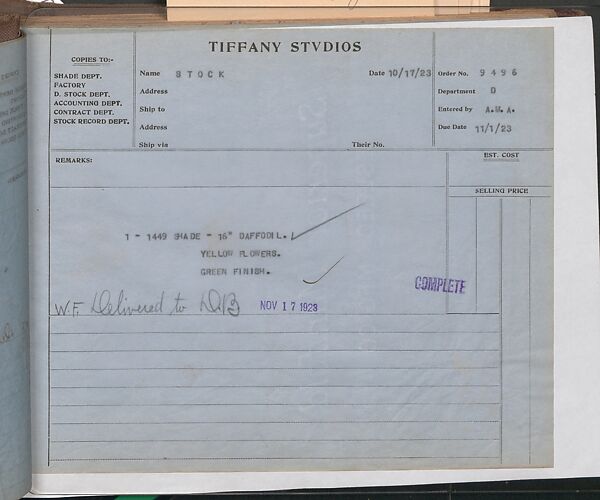 TIFFANY STVDIOS
COPIES TO:-
SHADE DEPT.
FACTORY
D. STOCK DEPT.
ACCOUNTING DEPT.
CONTRACT DEPT.
STOCK RECORD DEPT.
Name STOCK Date 10/17/23
Address
Ship to
Address
Ship via Their No.
Order No. 9496
Department D
Entered by A.M.A.
Due Date 11/1/23
REMARKS:
EST. COST
SELLING PRICE
1 - 1449 SHADE - 16" DAFFODIL.
YELLOW FLOWERS.
GREEN FINISH.
COMPLETE
W.F. Delivered to D.B NOV 17 1923